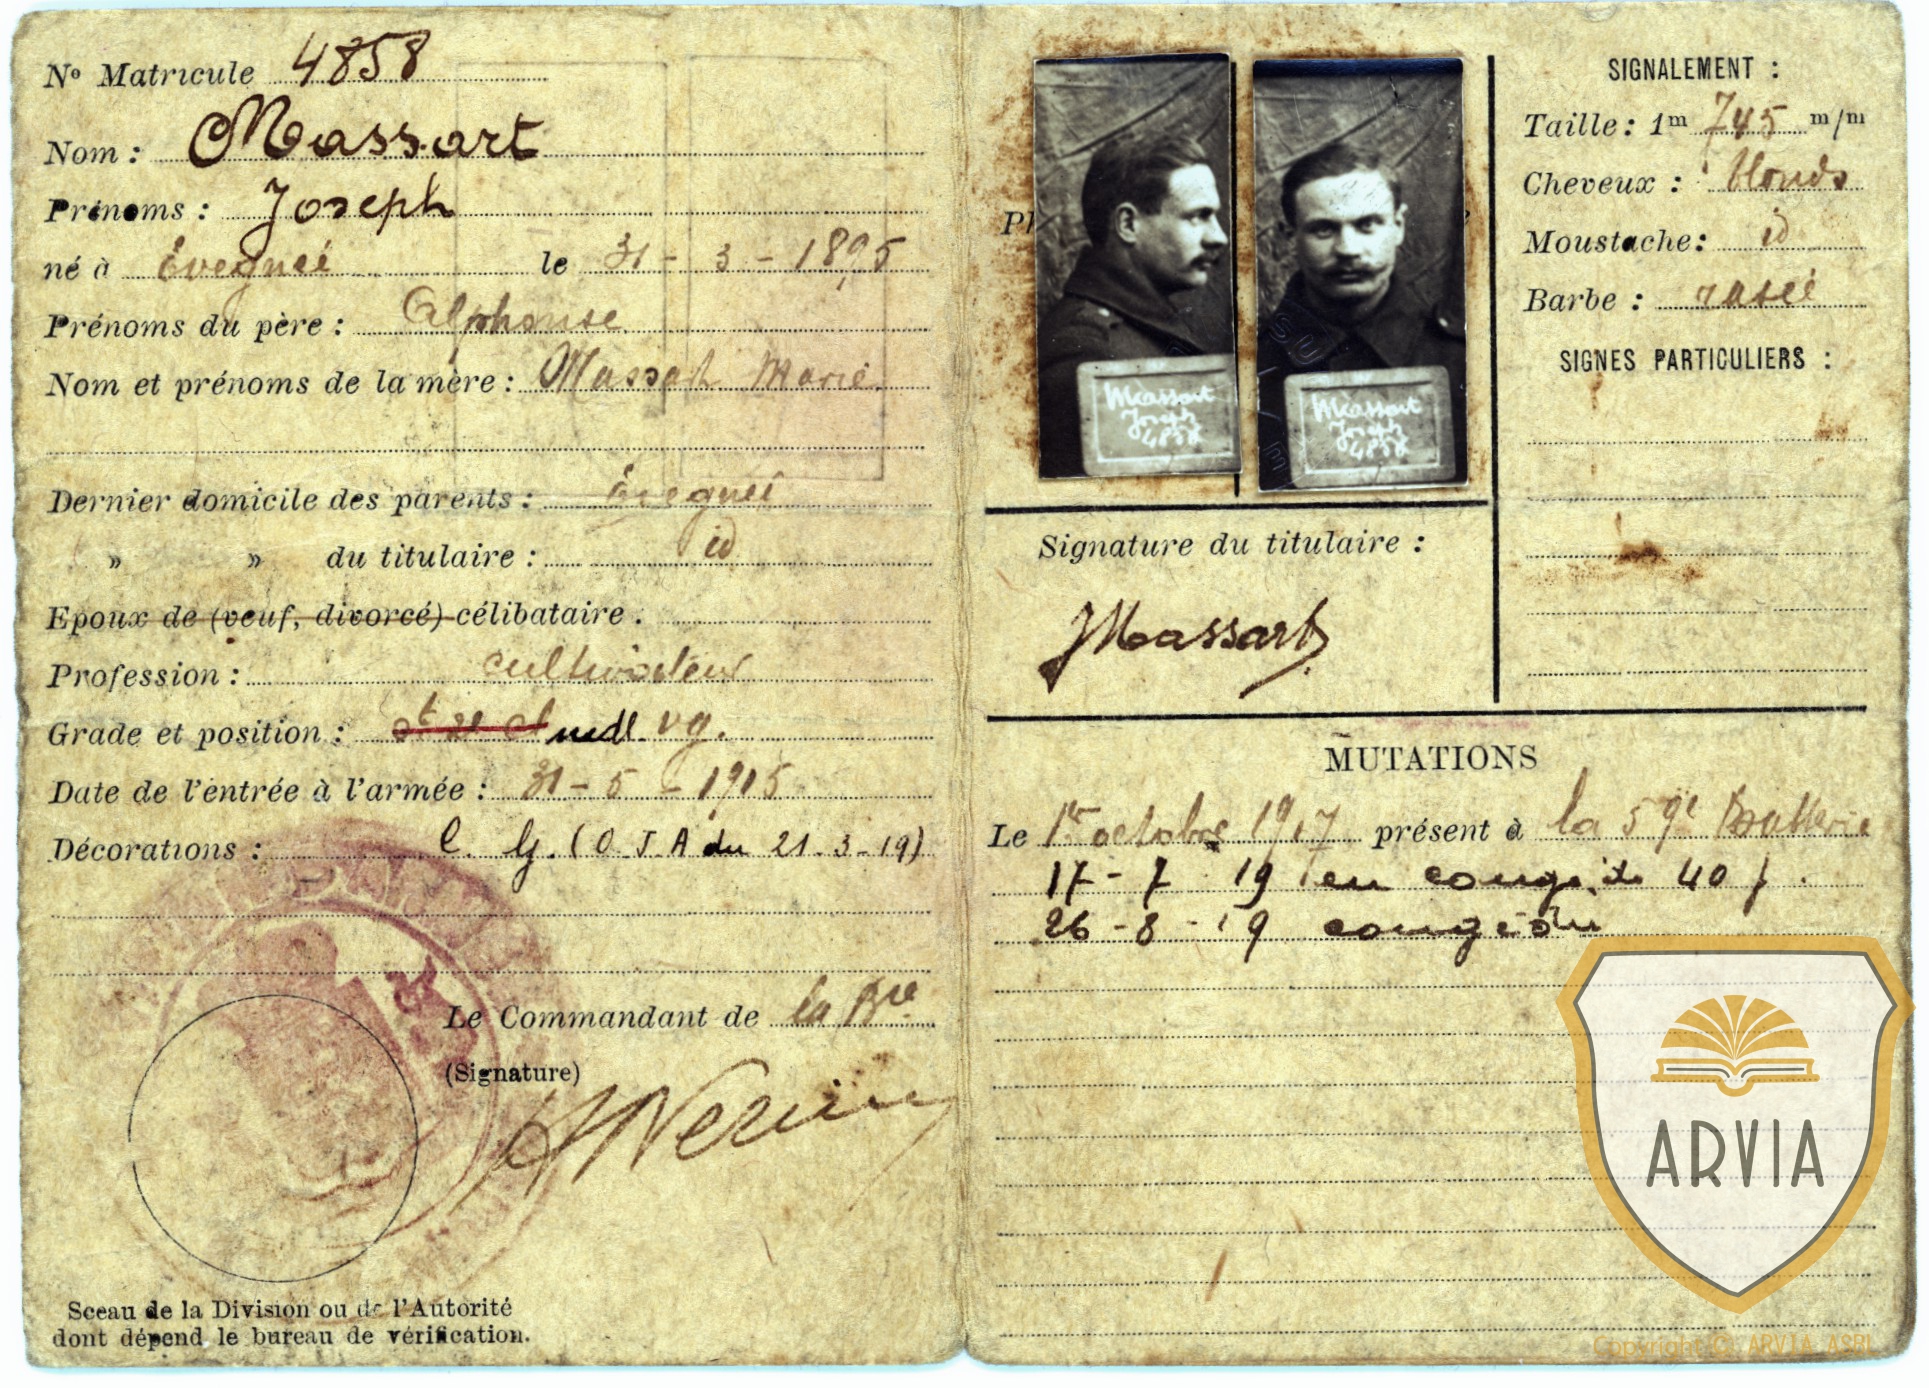 Nº Matricule 4858
Nom : Massart
Prénoms : Joseph
né à Évegnéé le 31 - 3 - 1895
Prénoms du père : Alphonse
Nom et prénoms de la mère : Massart Marie.
Dernier domicile des parents : Évegnéé
» » du titulaire : id
Epoux de (veuf, divorcé) célibataire .
Profession : cultivateur
Grade et position : mdl vg.
Date de l'entrée à l'armée : 31 - 5 - 1915
Décorations : C. G. (O J A du 21-3-19)
Le Commandant de la Bie
(Signature)
Sceau de la Division ou de l'Autorité
dont dépend le bureau de vérification.
Massart
Joseph
4858
Massart
Joseph
4858
Signature du titulaire :
JMassart
SIGNALEMENT :
Taille : 1m 745 m/m
Cheveux : blonds
Moustache : id
Barbe : rasée
SIGNES PARTICULIERS :
MUTATIONS
Le 1er octobre 1917 présent à la 59e Batterie
17 - 7 - 19 en congé de 40 j.
26 - 8 - 19 congé du
ARVIA
Copyright © ARVIA ASBL